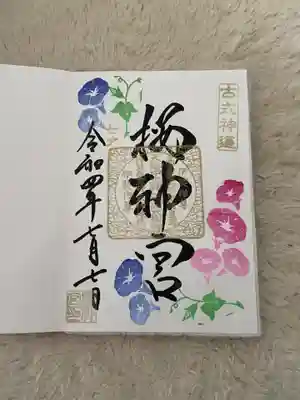 古式神道
桜神宮
令和四年七月七日